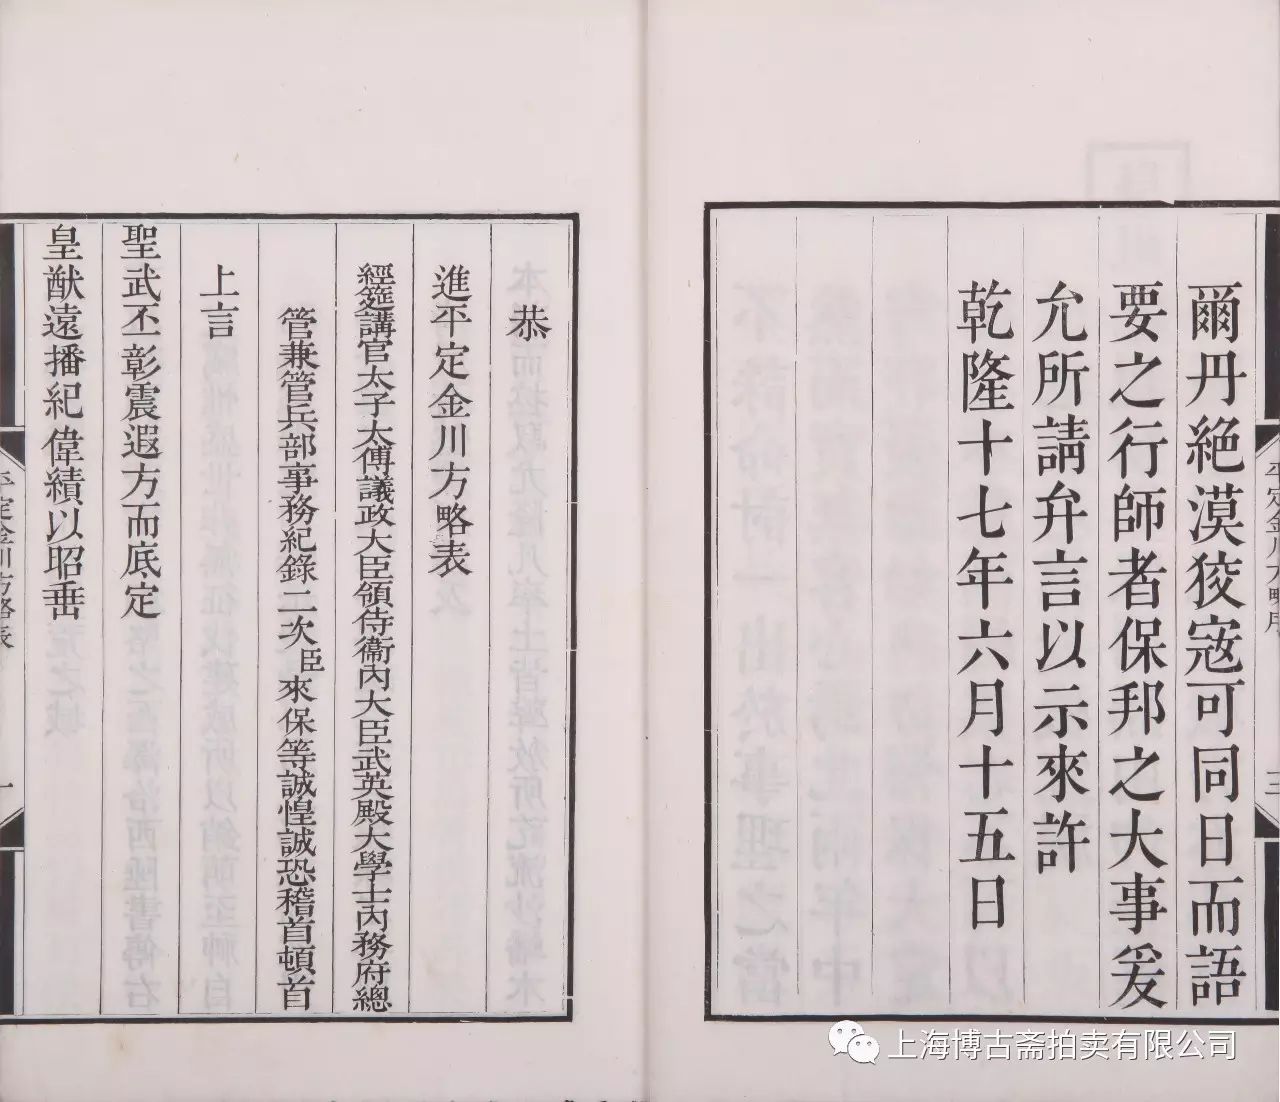 爾丹絕漠狡寇可同日而語
要之行師者保邦之大事爰
允所請弁言以示來許
乾隆十七年六月十五日
三
恭
進平定金川方略表
經筵講官太子太傅議政大臣領侍衛內大臣武英殿大學士內務府總
管兼管兵部事務紀錄二次臣來保等誠惶誠恐稽首頓首
上言
聖武丕彰震遐方而底定
皇猷遠播紀偉績以昭垂
平定金川方略表
一
上海博古斋拍卖有限公司